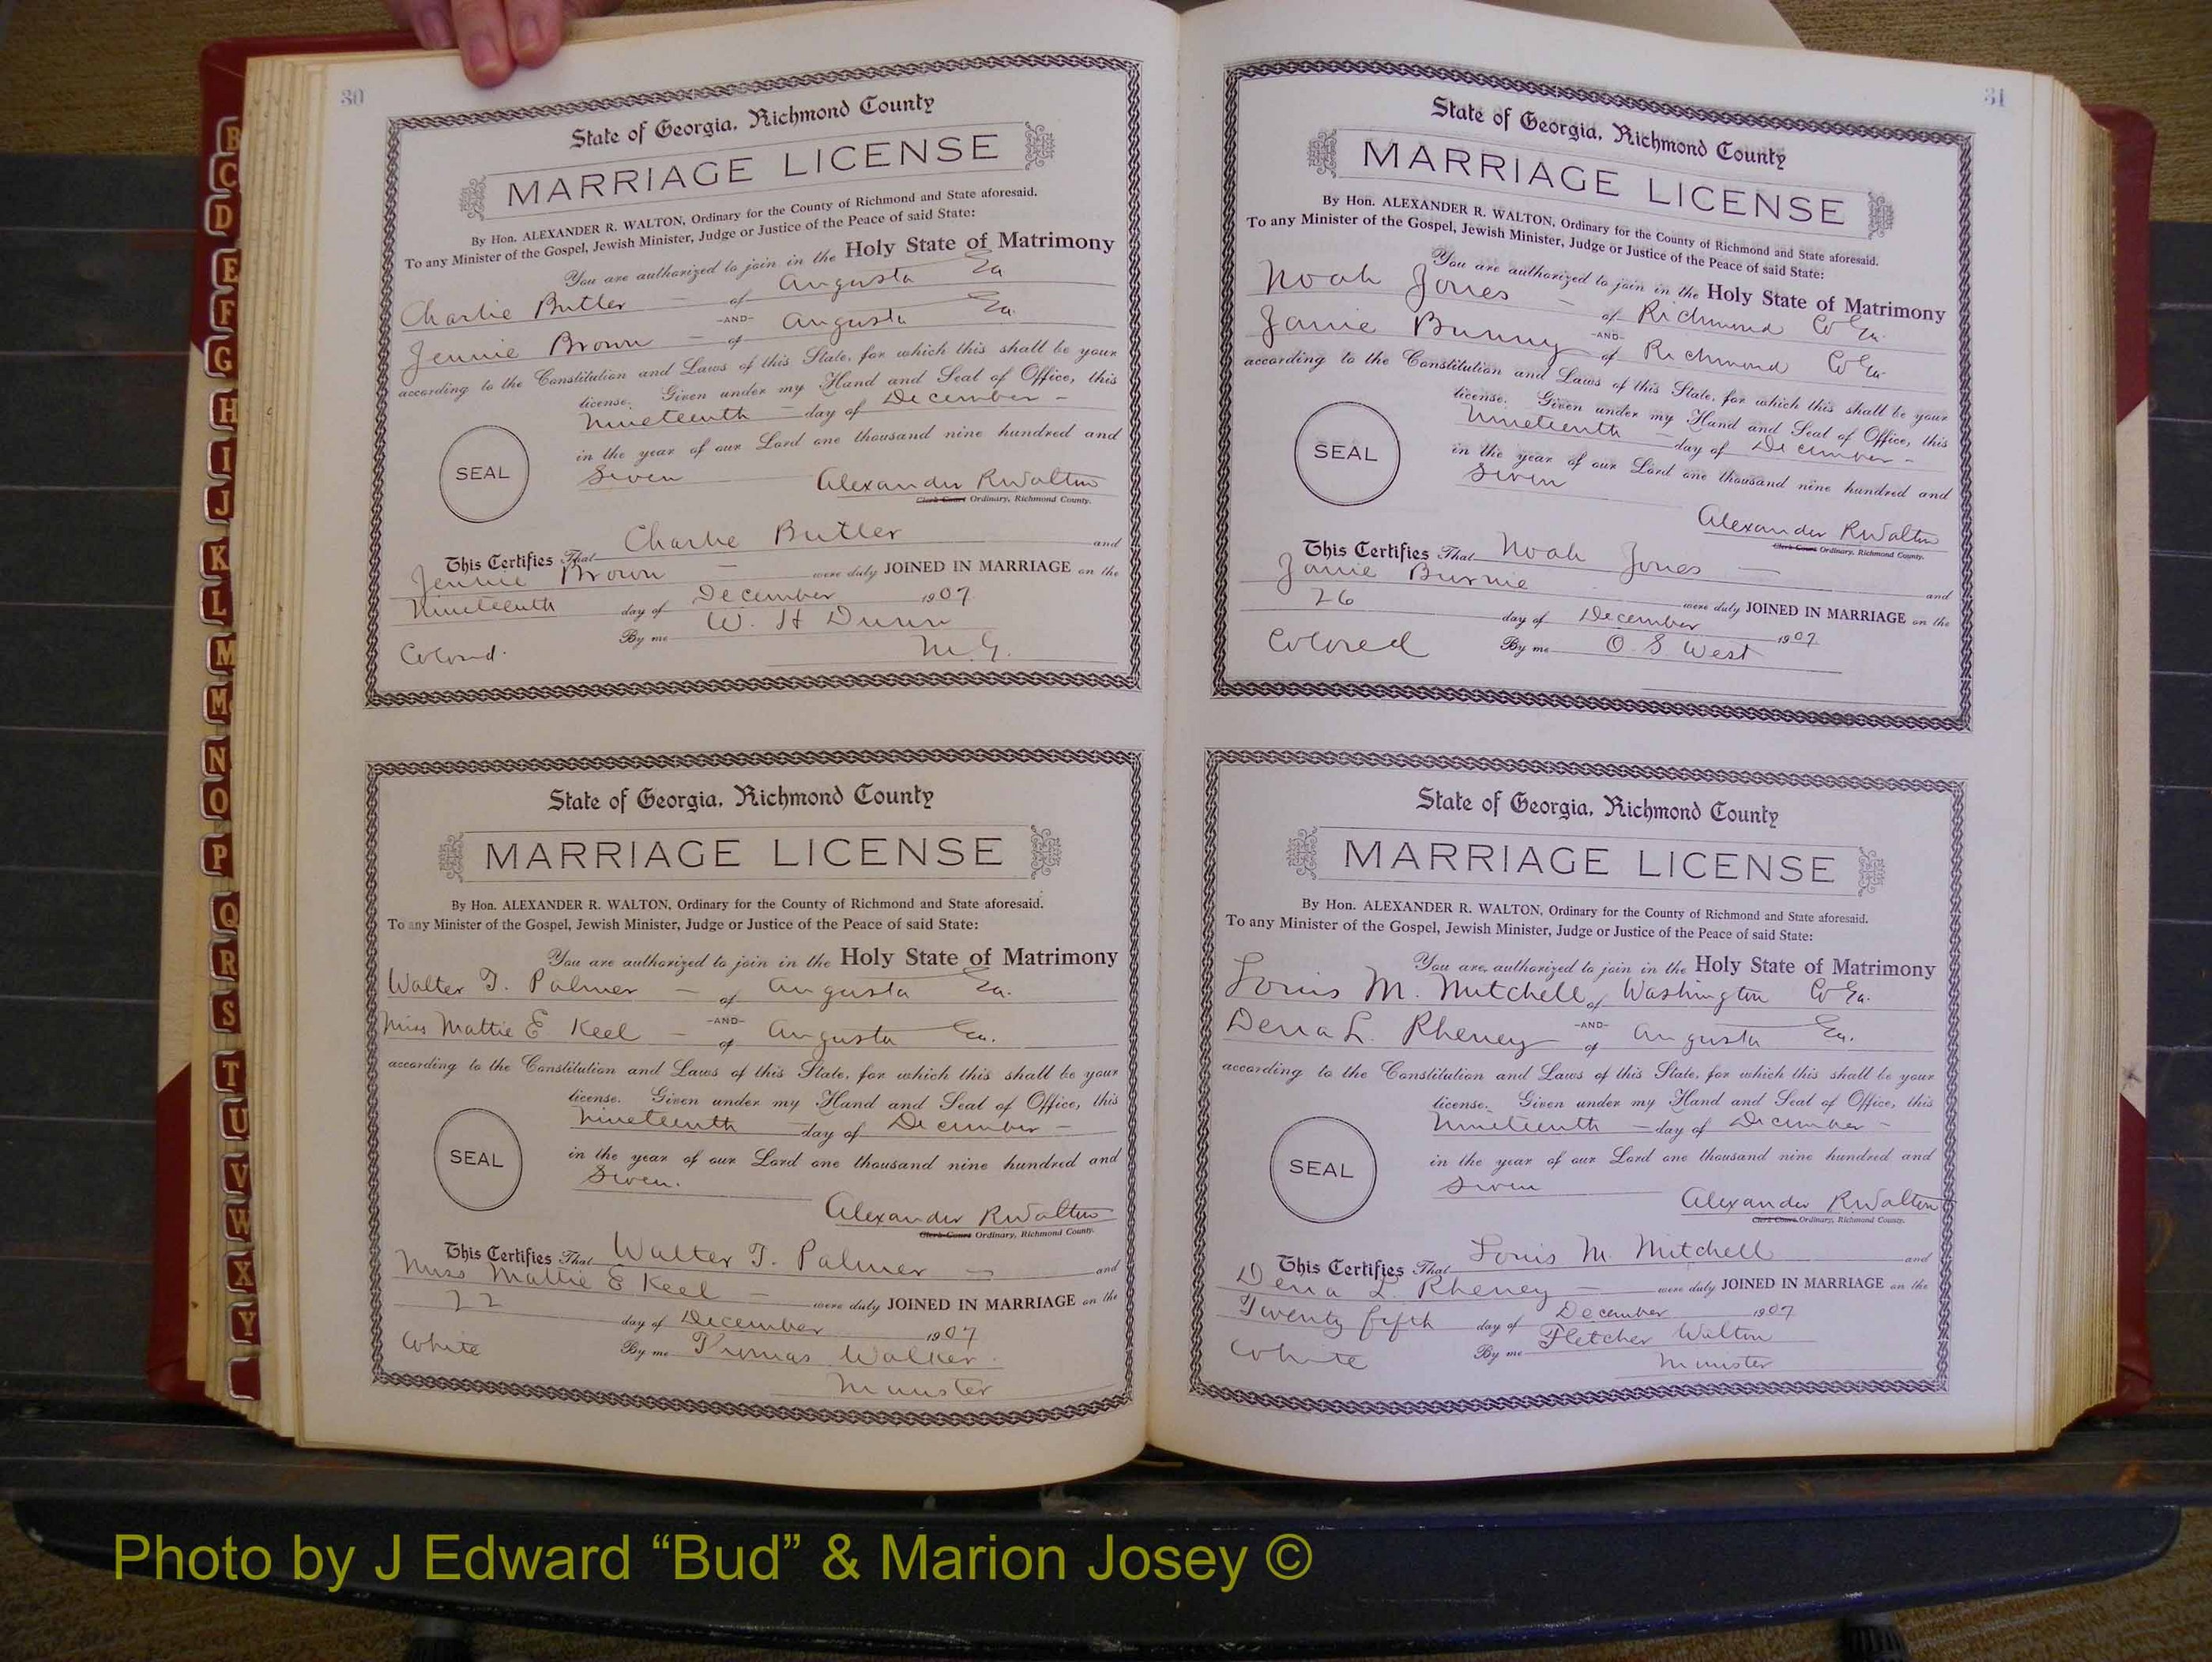 30
State of Georgia, Richmond County
MARRIAGE LICENSE
By Hon. ALEXANDER R. WALTON, Ordinary for the County of Richmond and State aforesaid.
To any Minister of the Gospel, Jewish Minister, Judge or Justice of the Peace of said State:
You are authorized to join in the Holy State of Matrimony
Charlie Butler - of Augusta Ga
-AND-
Jennie Brown - of Augusta Ga.
according to the Constitution and Laws of this State, for which this shall be your
license. Given under my Hand and Seal of Office, this
Nineteenth - day of December -
in the year of our Lord one thousand nine hundred and
SEAL
Seven
Alexander R Walton
Clerk Court Ordinary, Richmond County.
This Certifies That Charlie Butler and
Jennie Brown - were duly JOINED IN MARRIAGE on the
Nineteenth day of December 1907
By me W. H Dunn
Colored. M. G.
State of Georgia, Richmond County
MARRIAGE LICENSE
By Hon. ALEXANDER R. WALTON, Ordinary for the County of Richmond and State aforesaid.
To any Minister of the Gospel, Jewish Minister, Judge or Justice of the Peace of said State:
You are authorized to join in the Holy State of Matrimony
Walter T. Palmer - of Augusta Ga.
-AND-
Miss Mattie E Keel - of Augusta Ga.
according to the Constitution and Laws of this State, for which this shall be your
license. Given under my Hand and Seal of Office, this
Nineteenth day of December -
in the year of our Lord one thousand nine hundred and
SEAL
Seven.
Alexander R Walton
Clerk Court Ordinary, Richmond County.
This Certifies That Walter T. Palmer - and
Miss Mattie E Keel - were duly JOINED IN MARRIAGE on the
22 day of December 1907
White By me Thomas Walker.
Minister
31
State of Georgia, Richmond County
MARRIAGE LICENSE
By Hon. ALEXANDER R. WALTON, Ordinary for the County of Richmond and State aforesaid.
To any Minister of the Gospel, Jewish Minister, Judge or Justice of the Peace of said State:
You are authorized to join in the Holy State of Matrimony
Noah Jones - of Richmond Co Ga.
-AND-
Janie Bunny of Richmond Co Ga.
according to the Constitution and Laws of this State, for which this shall be your
license. Given under my Hand and Seal of Office, this
Nineteenth - day of December -
in the year of our Lord one thousand nine hundred and
SEAL
Seven
Alexander R Walton
Clerk Court Ordinary, Richmond County.
This Certifies That Noah Jones - and
Janie Burnie were duly JOINED IN MARRIAGE on the
26 day of December 1907
Colored By me O. S. West
State of Georgia, Richmond County
MARRIAGE LICENSE
By Hon. ALEXANDER R. WALTON, Ordinary for the County of Richmond and State aforesaid.
To any Minister of the Gospel, Jewish Minister, Judge or Justice of the Peace of said State:
You are authorized to join in the Holy State of Matrimony
Louis M. Mitchell of Washington Co Ga.
-AND-
L. Rheney of Augusta Ga.
according to the Constitution and Laws of this State, for which this shall be your
license. Given under my Hand and Seal of Office, this
Nineteenth - day of December -
in the year of our Lord one thousand nine hundred and
SEAL
Seven
Alexander R Walton
Clerk Court Ordinary, Richmond County.
This Certifies That Louis M. Mitchell and
L. Rheney - were duly JOINED IN MARRIAGE on the
Twenty fifth day of December 1907
White By me Fletcher Walton
Minister
B
C
D
E
F
G
H
I
J
K
L
M
M
N
O
P
Q
R
S
T
U
V
W
X
Y
Photo by J Edward “Bud” & Marion Josey ©